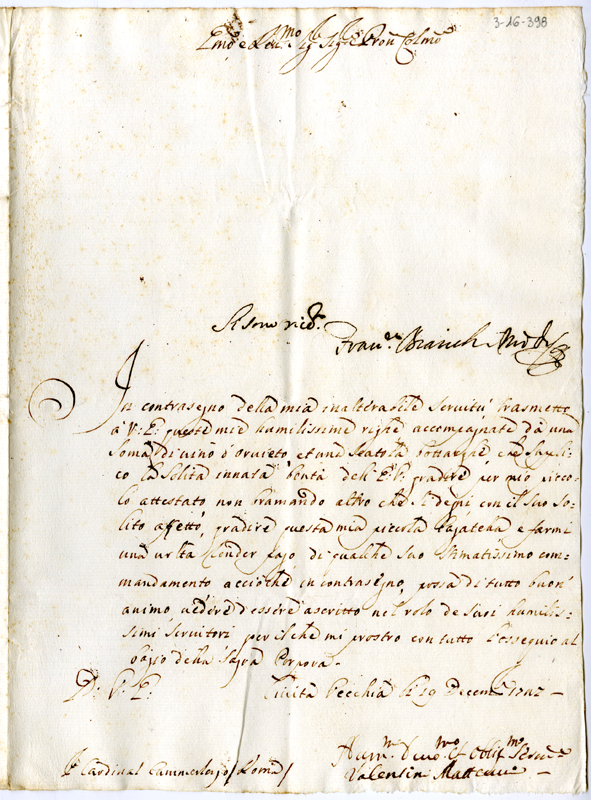 3-16-398
Emo e Rmo Sigre Pron Colmo
Si sono ricd.
Franco Bianch
In contrasegno della mia inalterabile servitù, trasmetto
à V: E: queste mie humilissime righe accompagnate dà una
soma di vino d'orvieto, et una scatola bottarghe che suppli=
co la solita innata bontà dell' E: V: gradire per mio picco=
lo attestato non bramando altro che si degni con il suo so=
lito affetto, gradire questa mia piccola e farmi
una di qualche suo stimatissimo com=
mandamento acciòche in contrasegno, possa di tutto buon
animo vedere d'essere ascritto nel rolo de suoi humilis=
simi servitori per il che mi prostro con tutto l'ossequio al
bagio della sagra Porpora.
D: V: E: Civita Vecchia li 19 Decemb
Hum. Devmo et Oblig.mo Serv
Valentin
Cardinal Cammerlengo / Roma /